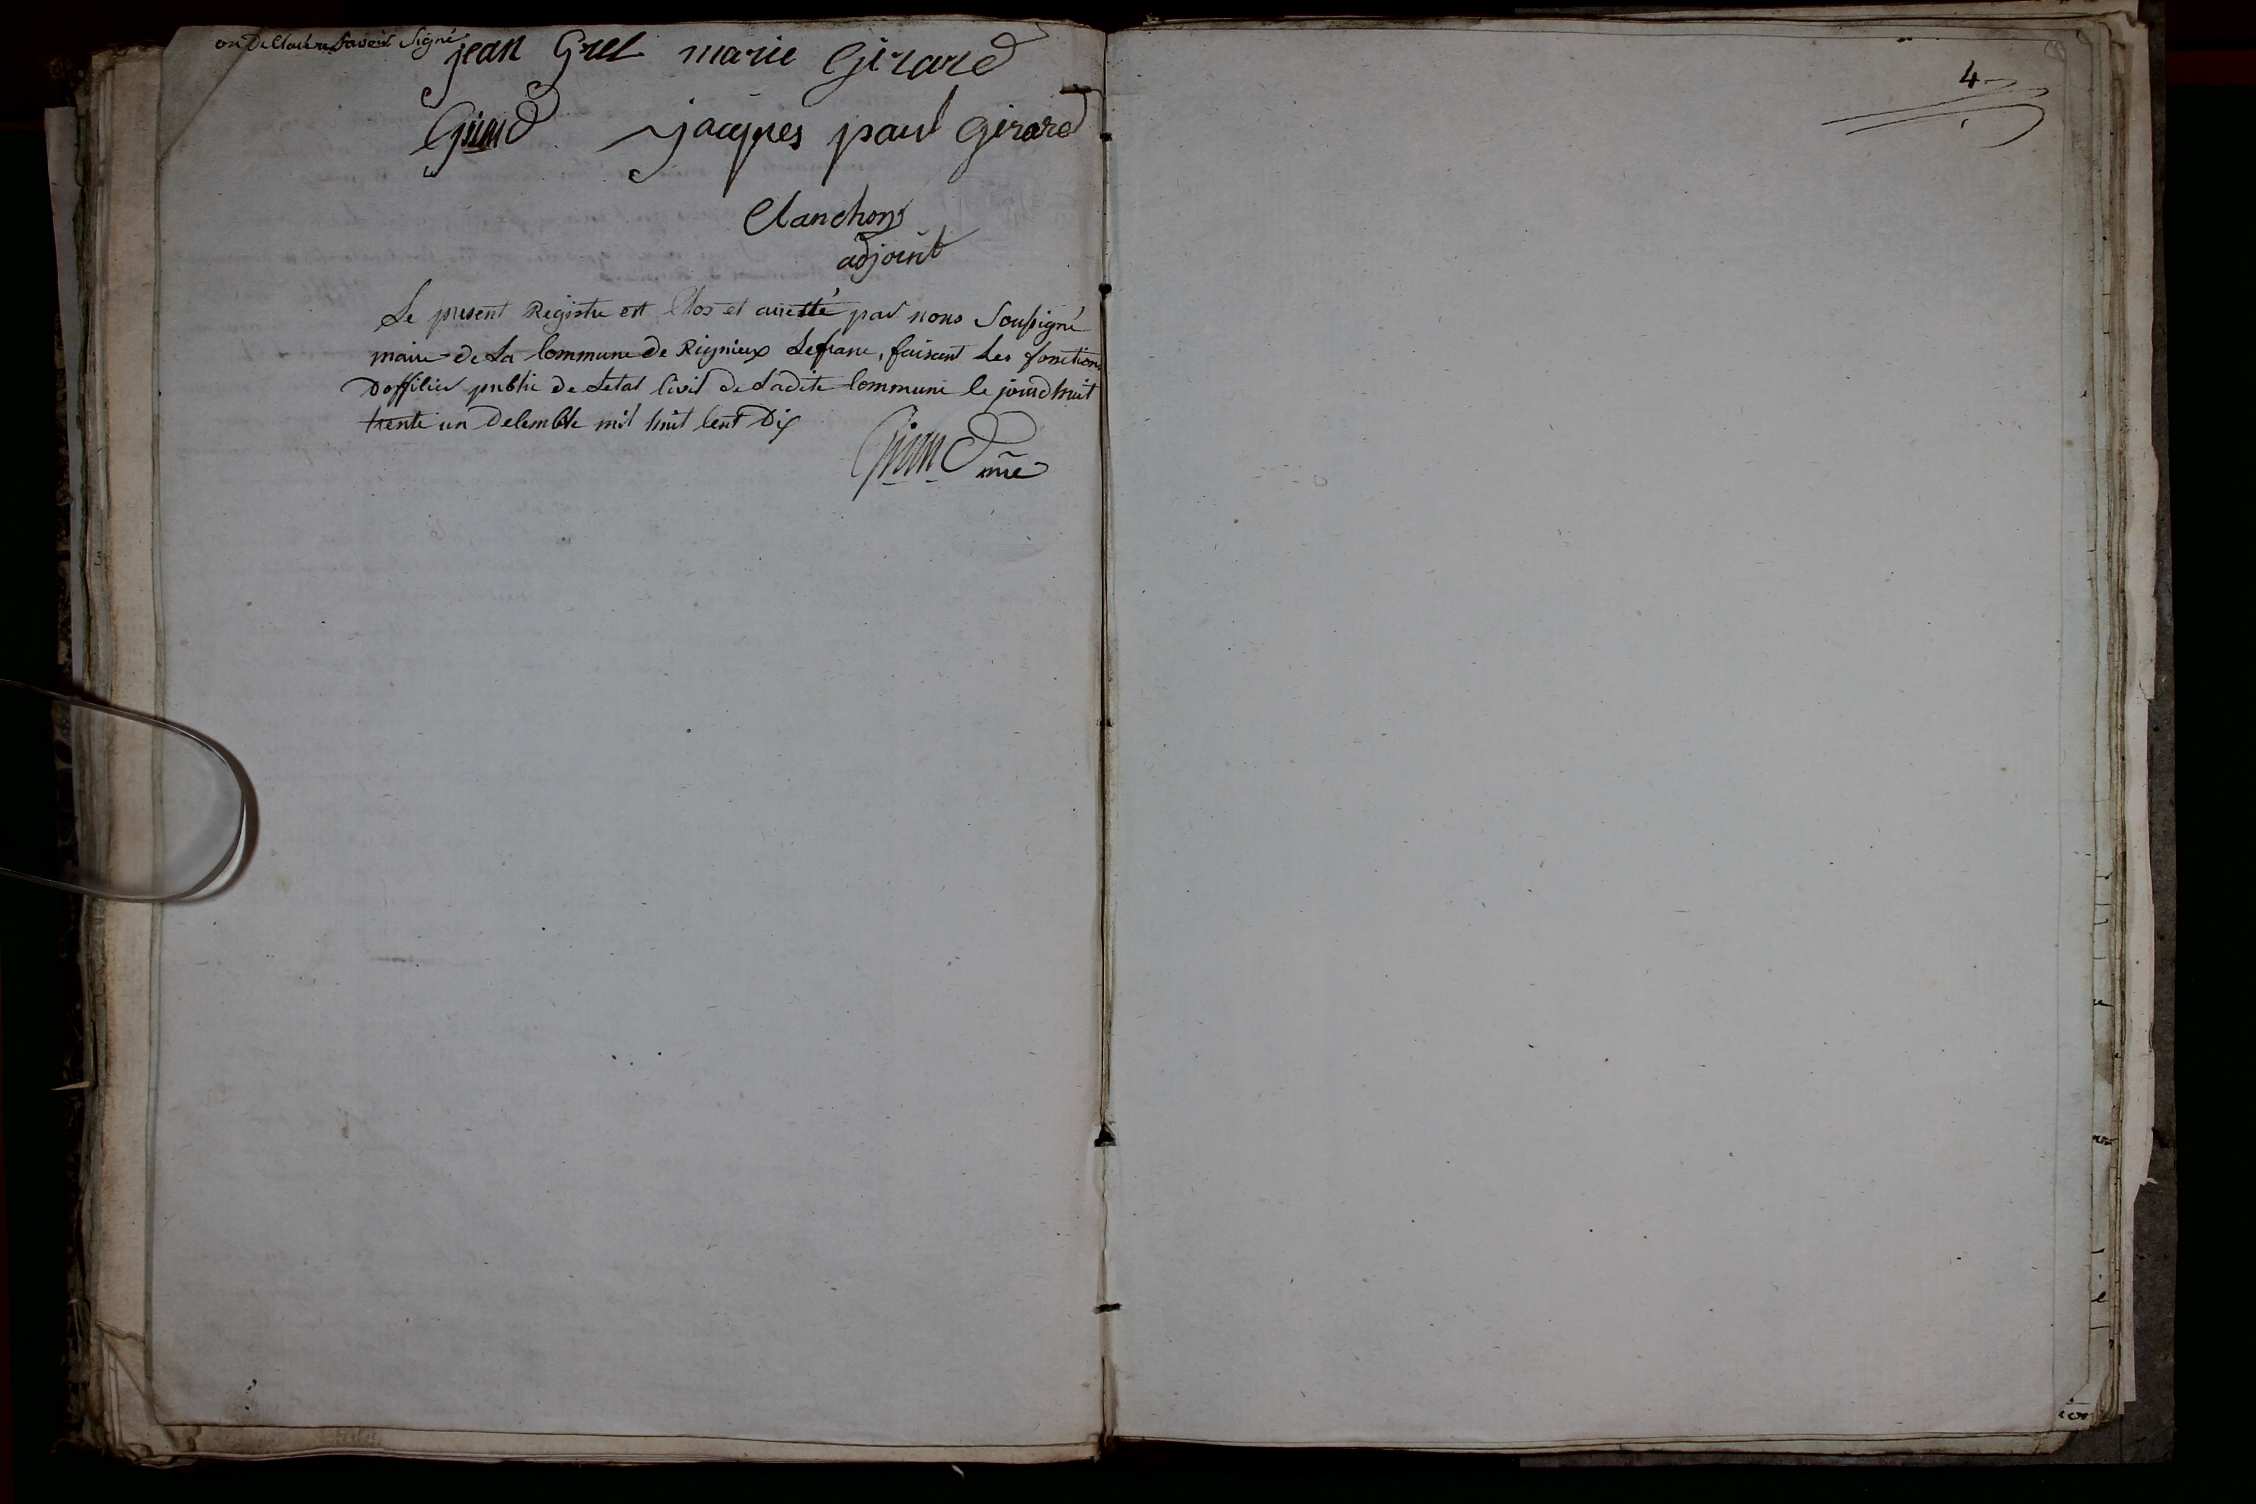 on Declaré ne Savoir Signé
jean Grel marie Girard
Girard jacques paul Girard
Clanchon
adjoint
Le present Registre est Clos et arretté par nous Soussigné
maire de La Commune de Rignieux Lefranc, faisant Les fonctions
Dofficier public de Letat Civil de Ladite Commune le jourdhuit
trente un Decembre mil huit Cent Dix
Girard mre
4